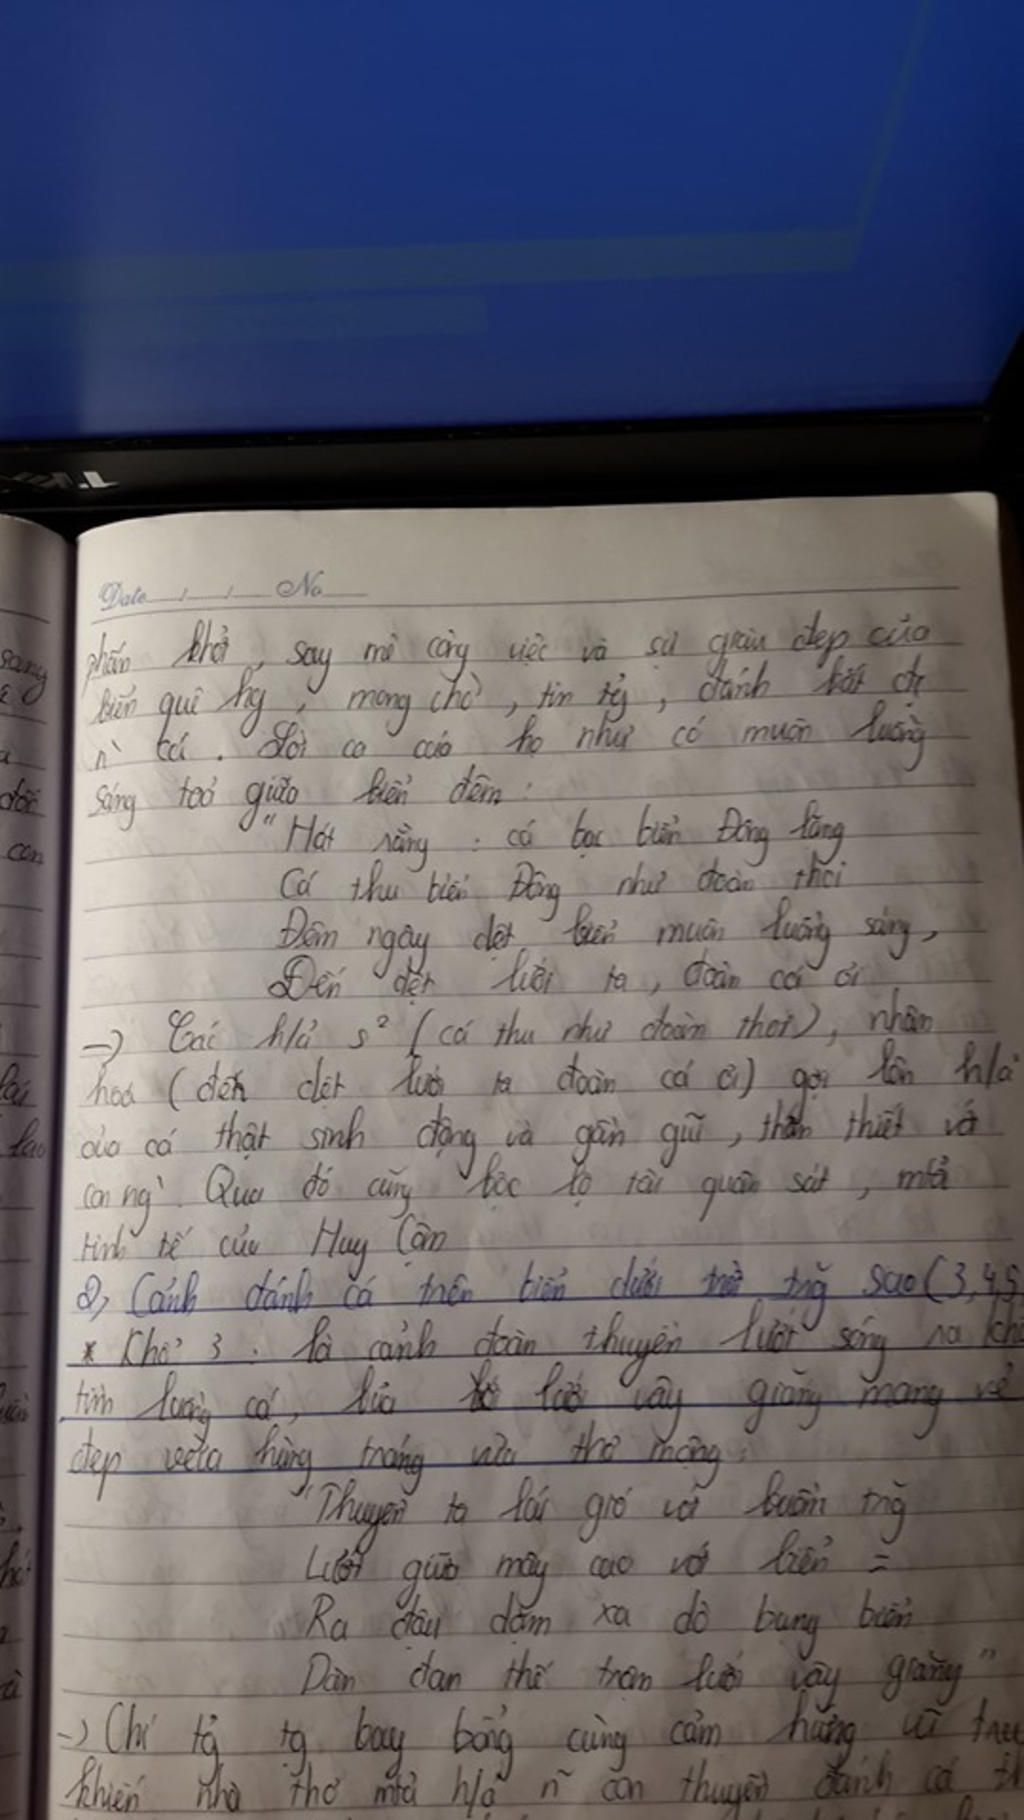 DELL
Date / / No
phấn khởi, say mê công việc và sự giàu đẹp của
biển quê hg, mong chờ, tin tg, đánh bắt đc
n` cá. Lời ca của họ như có muôn luồng
sáng toả giữa biển đêm:
"Hát rằng: cá bạc biển Đông lặng
Cá thu biển Đông như đoàn thoi
Đêm ngày dệt biển muôn luồng sáng,
Đến dệt lưới ta, đoàn cá ơi
-> Các h/ả s² (cá thu như đoàn thoi), nhân
hoá (đến dệt lưới ta đoàn cá ơi) gợi lên h/ả
của cá thật sinh động và gần gũi, thân thiết vớ
con ng`. Qua đó cũng bộc lộ tài quan sát, mtả
tinh tế của Huy Cận
2, Cảnh đánh cá trên biển dưới trời trg sao (3,4,5
* Khổ 3: là cảnh đoàn thuyền lướt sóng ra
tìm luồng cá, bủa lưới vây giăng mang vẻ
đẹp vừa hùng tráng vừa thơ mộng:
"Thuyền ta lái gió với buồm trg
Lướt giữa mây cao với biển =
Ra đậu dặm xa dò bụng biển
Dàn đan thế trận lưới vây giăng"
-> Chí tg tg bay bổng cùng cảm hứng vũ
khiến nhà thơ mtả h/ả n~ con thuyền đánh cá